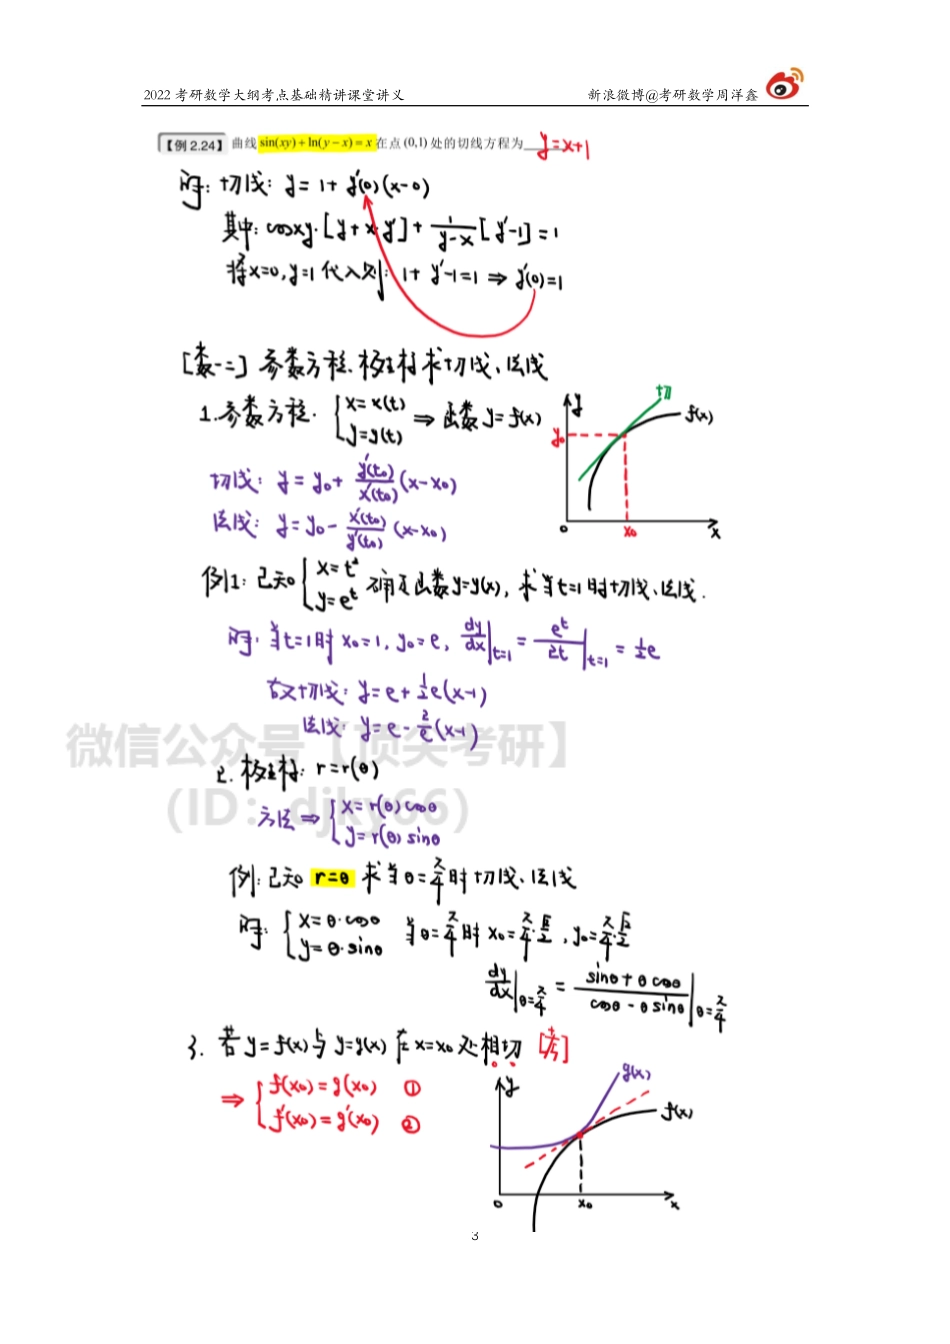 2022 考研数学大纲考点基础精讲课堂讲义 新浪微博@考研数学周洋鑫
【例 2.24】曲线 sin(xy)+ln(y−x)=x 在点 (0,1) 处的切线方程为 y=x+1
解: 切线: y=1+y'(0)(x-0)
其中: cosxy·[y+x·y']+1/(y-x)[y'-1]=1
将x=0,y=1代入则: 1+y'-1=1 ⇒ y'(0)=1
[数一二] 参数方程、极坐标求切线、法线
1.参数方程. {x=x(t) y=y(t) ⇒ 函数 y=f(x)
切 f(x) y y₀ o x₀ x
切线: y=y₀+y'(t₀)/x'(t₀)(x-x₀)
法线: y=y₀-x'(t₀)/y'(t₀)(x-x₀)
例1: 已知{x=t² y=e^t 确定函数y=y(x), 求当t=1时切线、法线.
解: 当t=1时 x₀=1, y₀=e, dy/dx|t=1 = e^t/2t|t=1 = ½e
故切线: y=e+½e(x-1)
法线: y=e-2/e(x-1)
微信公众号【顶尖考研】
(ID: djky66)
2. 极坐标: r=r(θ)
方法 ⇒ {x=r(θ)cosθ y=r(θ)sinθ
例: 已知 r=θ 求当θ=π/4时切线、法线
解: {x=θ·cosθ y=θ·sinθ 当θ=π/4时 x₀=π/4·√2/2, y₀=π/4·√2/2
dy/dx|θ=π/4 = (sinθ+θcosθ)/(cosθ-θsinθ)|θ=π/4
3. 若y=f(x)与y=g(x)在x=x₀处相切 [考]
⇒ {f(x₀)=g(x₀) ①
f'(x₀)=g'(x₀) ②
y g(x) f(x) o x₀ x
3